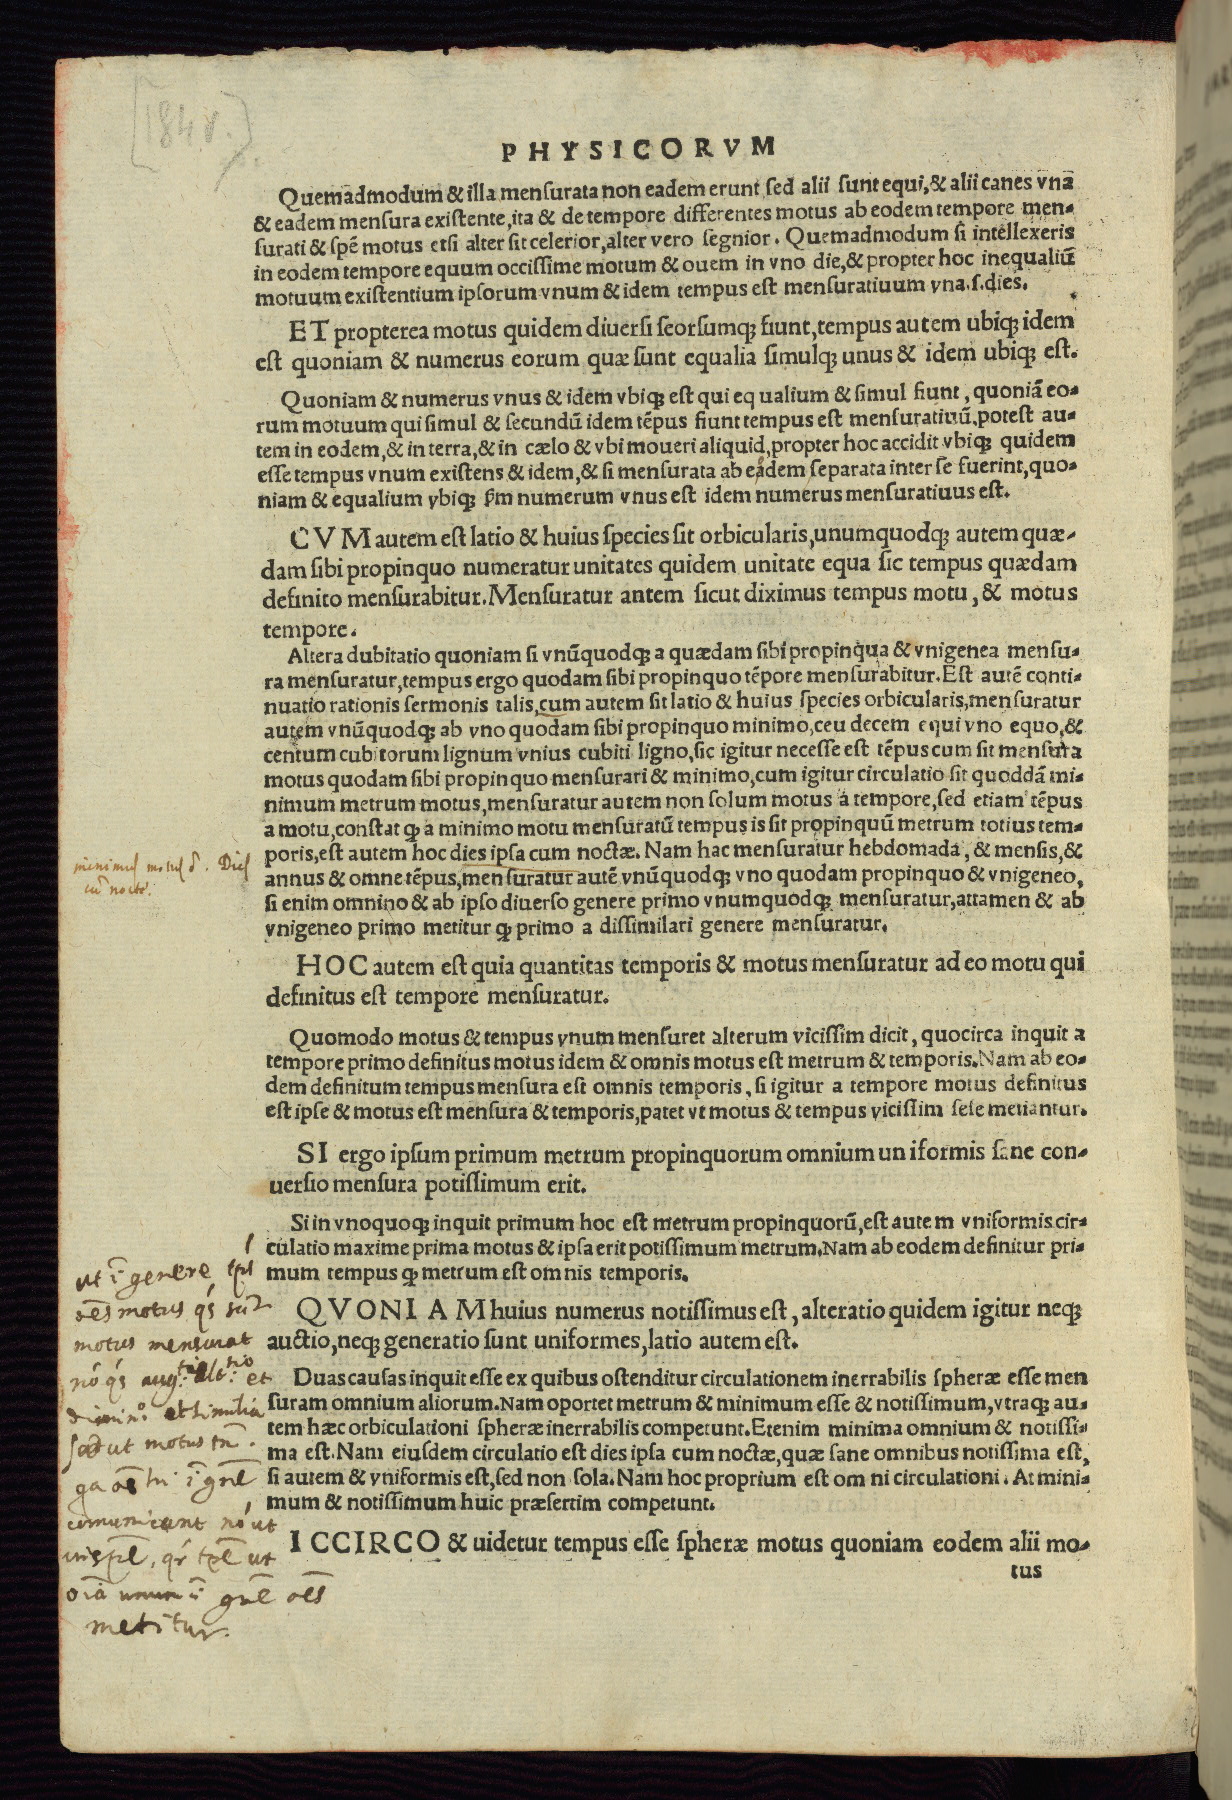 [184 v.]
PHYSICORVM
Quemadmodum & illa mensurata non eadem erunt sed alii sunt equi, & alii canes vna
& eadem mensura existente, ita & de tempore differentes motus ab eodem tempore men-
surati & spē motus etsi alter sit celerior, alter vero segnior. Quemadmodum si intellexeris
in eodem tempore equum occissime motum & ouem in vno die, & propter hoc inequaliū
motuum existentium ipsorum vnum & idem tempus est mensuratiuum vna.s.dies.
ET propterea motus quidem diuersi seorsumq; fiunt, tempus autem ubiq; idem
est quoniam & numerus eorum quæ sunt equalia simulq; unus & idem ubiq; est.
Quoniam & numerus vnus & idem vbiq; est qui eq ualium & simul fiunt, quoniā eo-
rum motuum qui simul & secundū idem tēpus fiunt tempus est mensuratiuū, potest au-
tem in eodem, & in terra, & in cælo & vbi moueri aliquid, propter hoc accidit vbiq; quidem
esse tempus vnum existens & idem, & si mensurata ab eadem separata inter se fuerint, quo-
niam & equalium vbiq; ꝑm numerum vnus est idem numerus mensuratiuus est.
CVM autem est latio & huius species sit orbicularis, unumquodq; autem quæ-
dam sibi propinquo numeratur unitates quidem unitate equa sic tempus quædam
definito mensurabitur. Mensuratur antem sicut diximus tempus motu, & motus
tempore.
Altera dubitatio quoniam si vnūquodq; a quædam sibi propinqua & vnigenea mensu-
ra mensuratur, tempus ergo quodam sibi propinquo tēpore mensurabitur. Est autē conti-
nuatio rationis sermonis talis, cum autem sit latio & huius species orbicularis, mensuratur
autem vnūquodq; ab vno quodam sibi propinquo minimo, ceu decem equi vno equo, &
centum cubitorum lignum vnius cubiti ligno, sic igitur necesse est tēpus cum sit mensura
motus quodam sibi propinquo mensurari & minimo, cum igitur circulatio sit quoddā mi-
nimum metrum motus, mensuratur autem non solum motus a tempore, sed etiam tēpus
a motu, constat q; a minimo motu mensuratū tempus is sit propinquū metrum totius tem-
poris, est autem hoc dies ipsa cum noctæ. Nam hac mensuratur hebdomada, & mensis, &
annus & omne tēpus, mensuratur autē vnūquodq; vno quodam propinquo & vnigeneo,
si enim omnino & ab ipso diuerso genere primo vnumquodq; mensuratur, attamen & ab
vnigeneo primo metitur q; primo a dissimilari genere mensuratur.
minimus motus ē. Dies
cū nocte.
HOC autem est quia quantitas temporis & motus mensuratur ad eo motu qui
definitus est tempore mensuratur.
Quomodo motus & tempus vnum mensuret alterum vicissim dicit, quocirca inquit a
tempore primo definitus motus idem & omnis motus est metrum & temporis. Nam ab eo-
dem definitum tempus mensura est omnis temporis, si igitur a tempore motus definitus
est ipse & motus est mensura & temporis, patet vt motus & tempus vicissim sese metiantur.
SI ergo ipsum primum metrum propinquorum omnium un iformis sane con-
uersio mensura potissimum erit.
Si in vnoquoq; inquit primum hoc est metrum propinquorū, est autem vniformis cir-
culatio maxime prima motus & ipsa erit potissimum metrum. Nam ab eodem definitur pri-
mum tempus q; metrum est omnis temporis.
QVONIAM huius numerus notissimus est, alteratio quidem igitur neq;
auctio, neq; generatio sunt uniformes, latio autem est.
Duas causas inquit esse ex quibus ostenditur circulationem inerrabilis spheræ esse men
suram omnium aliorum. Nam oportet metrum & minimum esse & notissimum, vtraq; au-
tem hæc orbiculationi spheræ inerrabilis competunt. Etenim minima omnium & notissi-
ma est. Nam eiusdem circulatio est dies ipsa cum noctæ, quæ sane omnibus notissima est,
si autem & vniformis est, sed non sola. Nam hoc proprium est om ni circulationi. At mini-
mum & notissimum huic præsertim competunt.
ICCIRCO & uidetur tempus esse spheræ motus quoniam eodem alii mo-
tus
ut ī genere
oēs motus
motus mensurat
et
et similia
ut motus
ī gnē
comunicant nō ut
ut
unum ī gnē oēs
metitur.